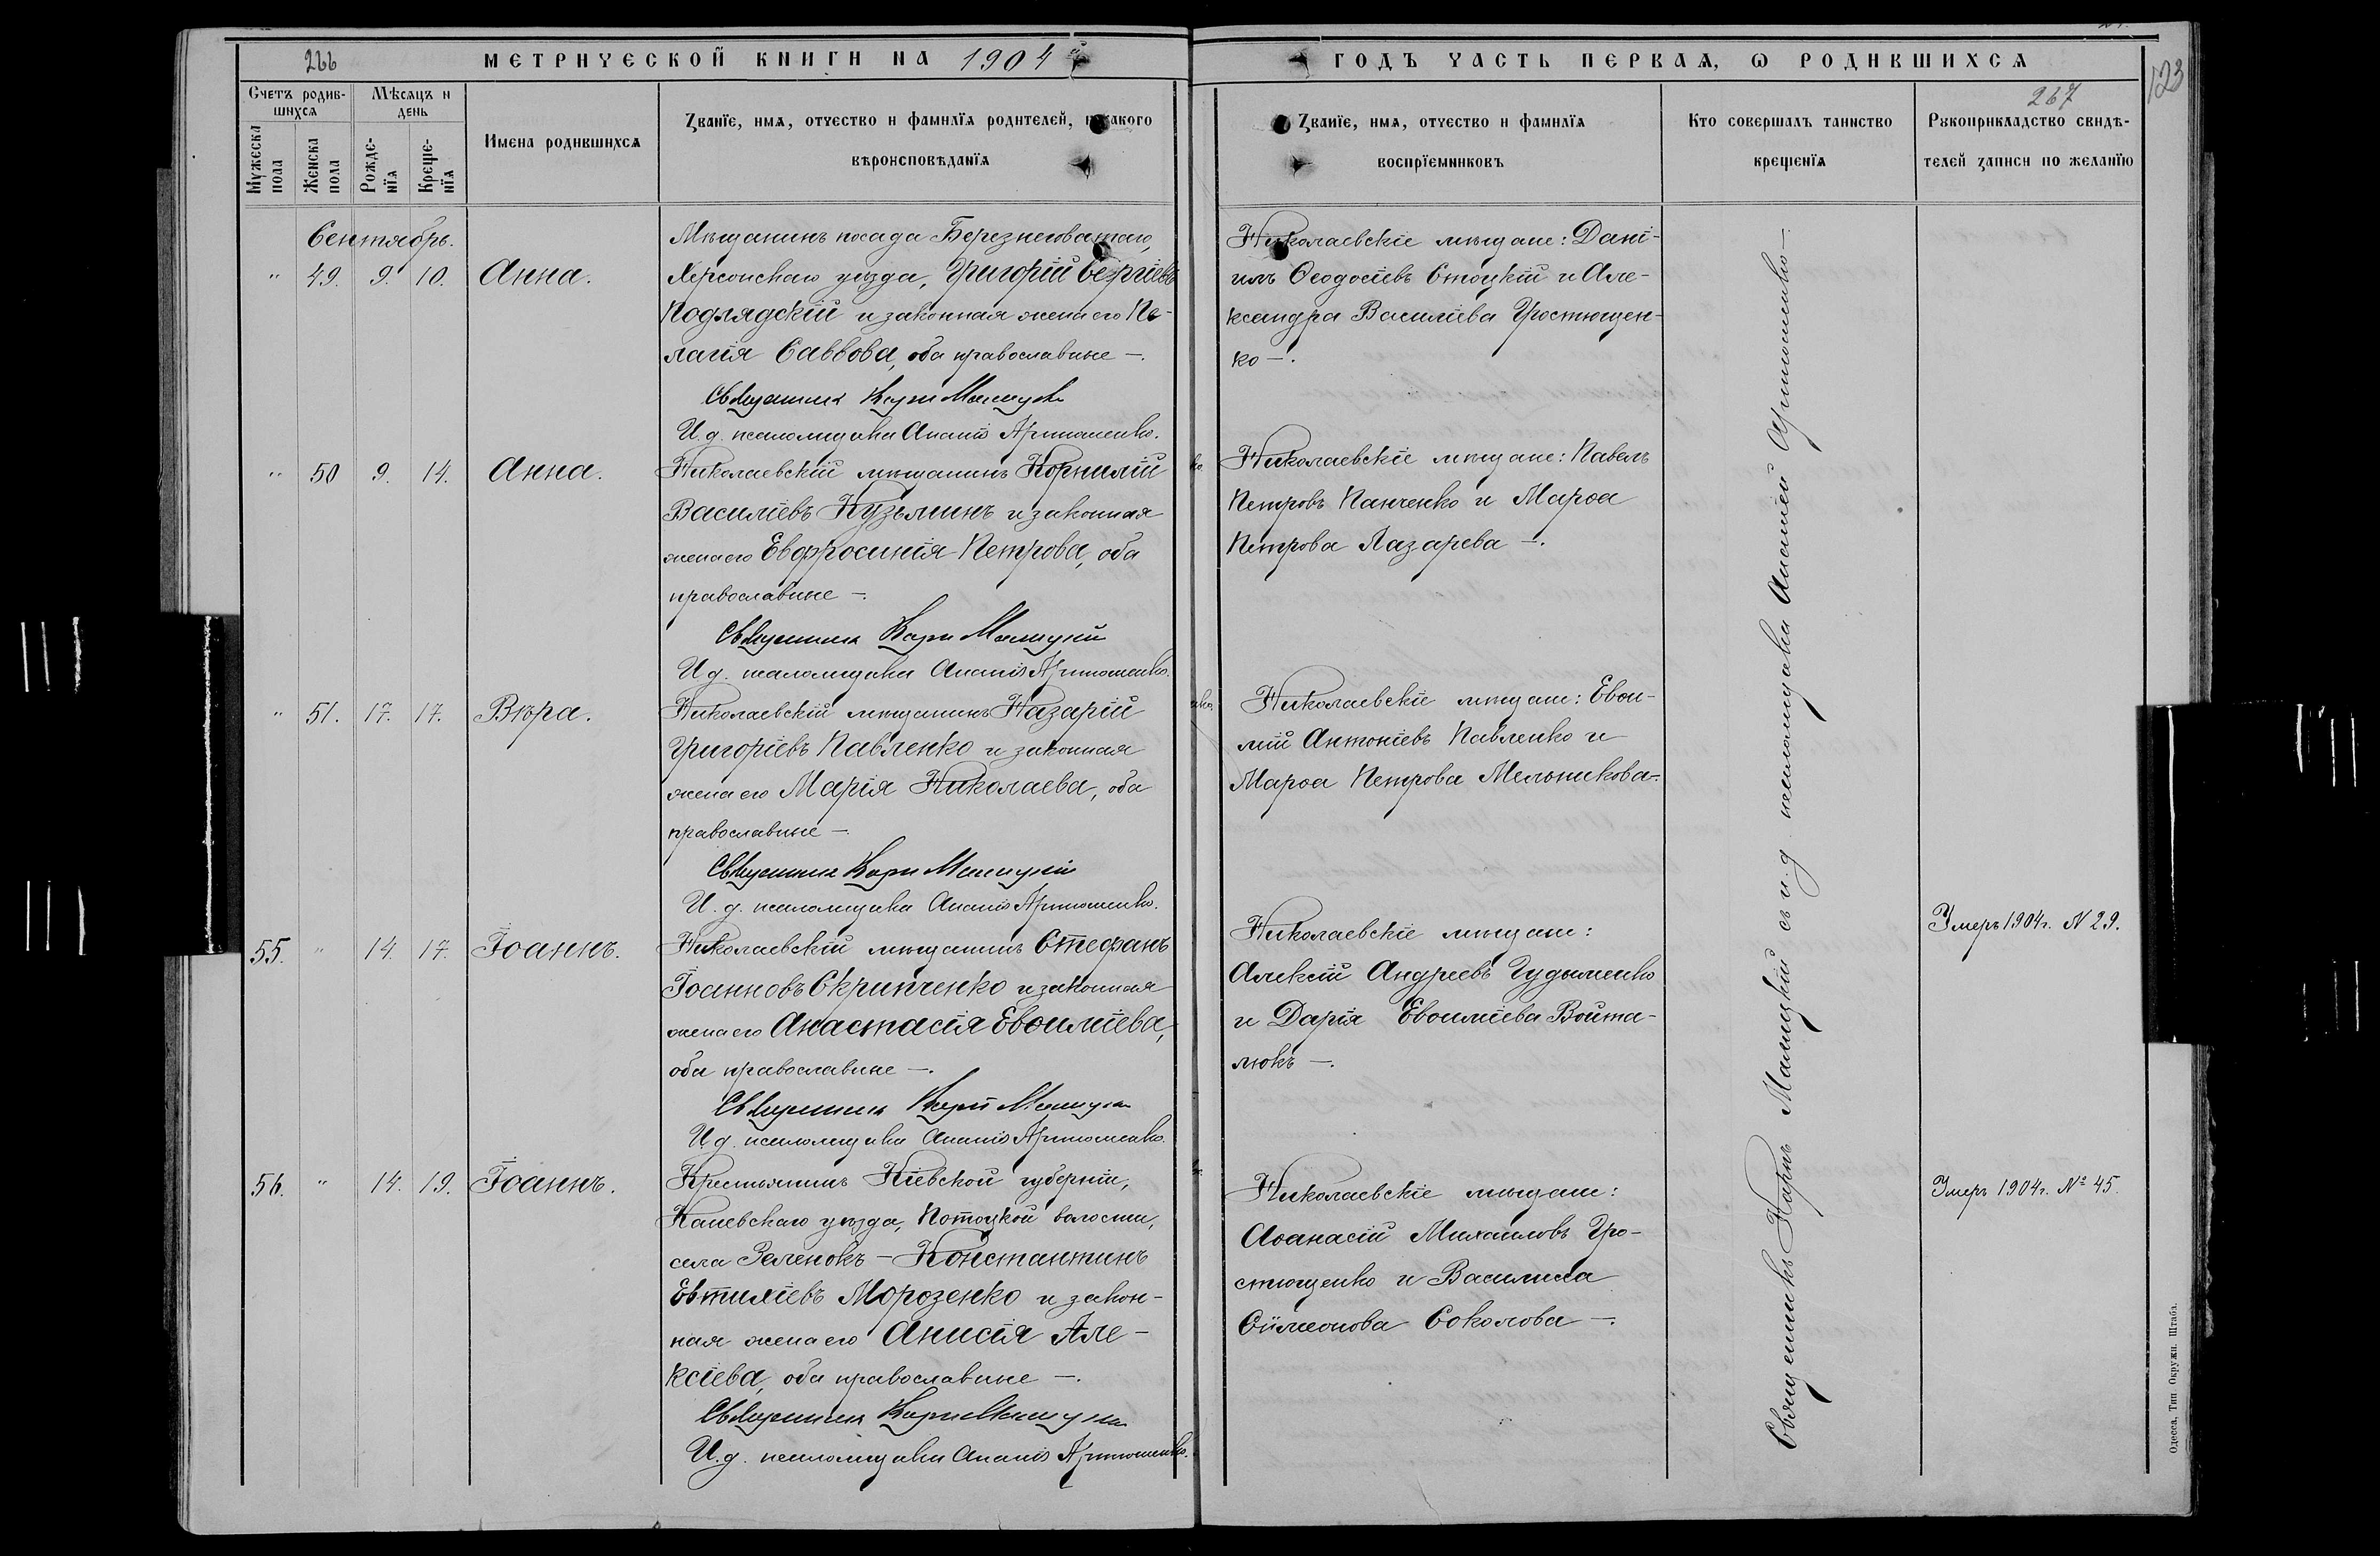 266
МЕТРИЧЕСКОЙ КНИГИ НА 1904 й
ГОДЪ ЧАСТЬ ПЕРВАѦ, Ѡ РОДИВШИХСѦ
123
267
Счетъ родив-
шихсѧ
Мѣсѧцъ и
день
Мужеска
пола
Женска
пола
Рожде-
нїѧ
Креще-
нїѧ
Имена родившихсѧ
Званїе, имѧ, отчество и фамилїѧ родителей, и какого
вѣроисповѣданїѧ
Званїе, имѧ, отчество и фамилїѧ
воспрїемниковъ
Кто совершалъ таинство
крещенїѧ
Рѹкоприкладство свидѣ-
телей записи по желанїю
Сентябрь.
" 49. 9. 10. Анна.
Мѣщанинъ посада Березнеговатаго,
Херсонскаго уѣзда, Григорій Сергіевъ
Подлядскій и законная жена его Пе-
лагія Саввова, оба православные —.
Священникъ Карпъ Малицкій
И. д. псаломщика Ананій Артюшенко.
Николаевскіе мѣщане: Дані-
илъ Ѳеодосіевъ Стоцкій и Але-
ксандра Василіева Гростющен-
ко —.
" 50 9. 14. Анна.
Николаевскій мѣщанинъ Корнилій
Василіевъ Кузьминъ и законная
жена его Евфросинія Петрова, оба
православные —.
Священникъ Карпъ Малицкій
И. д. псаломщика Ананій Артюшенко.
Николаевскіе мѣщане: Павелъ
Петровъ Панченко и Марѳа
Петрова Лазарева —.
" 51. 17. 17. Вѣра.
Николаевскій мѣщанинъ Назарій
Григоріевъ Павленко и законная
жена его Марія Николаева, оба
православные —.
Священникъ Карпъ Малицкій
И. д. псаломщика Ананій Артюшенко.
Николаевскіе мѣщане: Евѳи-
мій Антоніевъ Павленко и
Марѳа Петрова Мельникова —.
55. " 14. 17. Іоаннъ.
Николаевскій мѣщанинъ Стефанъ
Іоанновъ Скрипченко и законная
жена его Анастасія Евѳиміева,
оба православные —.
Священникъ Карпъ Малицкій
И. д. псаломщика Ананій Артюшенко.
Николаевскіе мѣщане:
Алексій Андреевъ Гудыменко
и Дарія Евѳиміева Война-
люкъ —.
Умеръ 1904 г. N 29.
56. " 14. 19. Іоаннъ.
Крестьянинъ Кіевской губерніи,
Каневскаго уѣзда, Потоцкой волости,
села Зеленокъ — Константинъ
Евтихіевъ Морозенко и закон-
ная жена его Анисія Але-
ксіева, оба православные —.
Священникъ Карпъ Малицкій
И. д. псаломщика Ананій Артюшенко.
Николаевскіе мѣщане:
Аѳанасій Михаиловъ Гро-
стющенко и Василиса
Симеонова Соколова —.
Умеръ 1904 г. № 45.
Священникъ Карпъ Малицкій съ и. д. псаломщика Ананіей Артюшенко —.
Одесса, Тип. Окружн. Штаба.